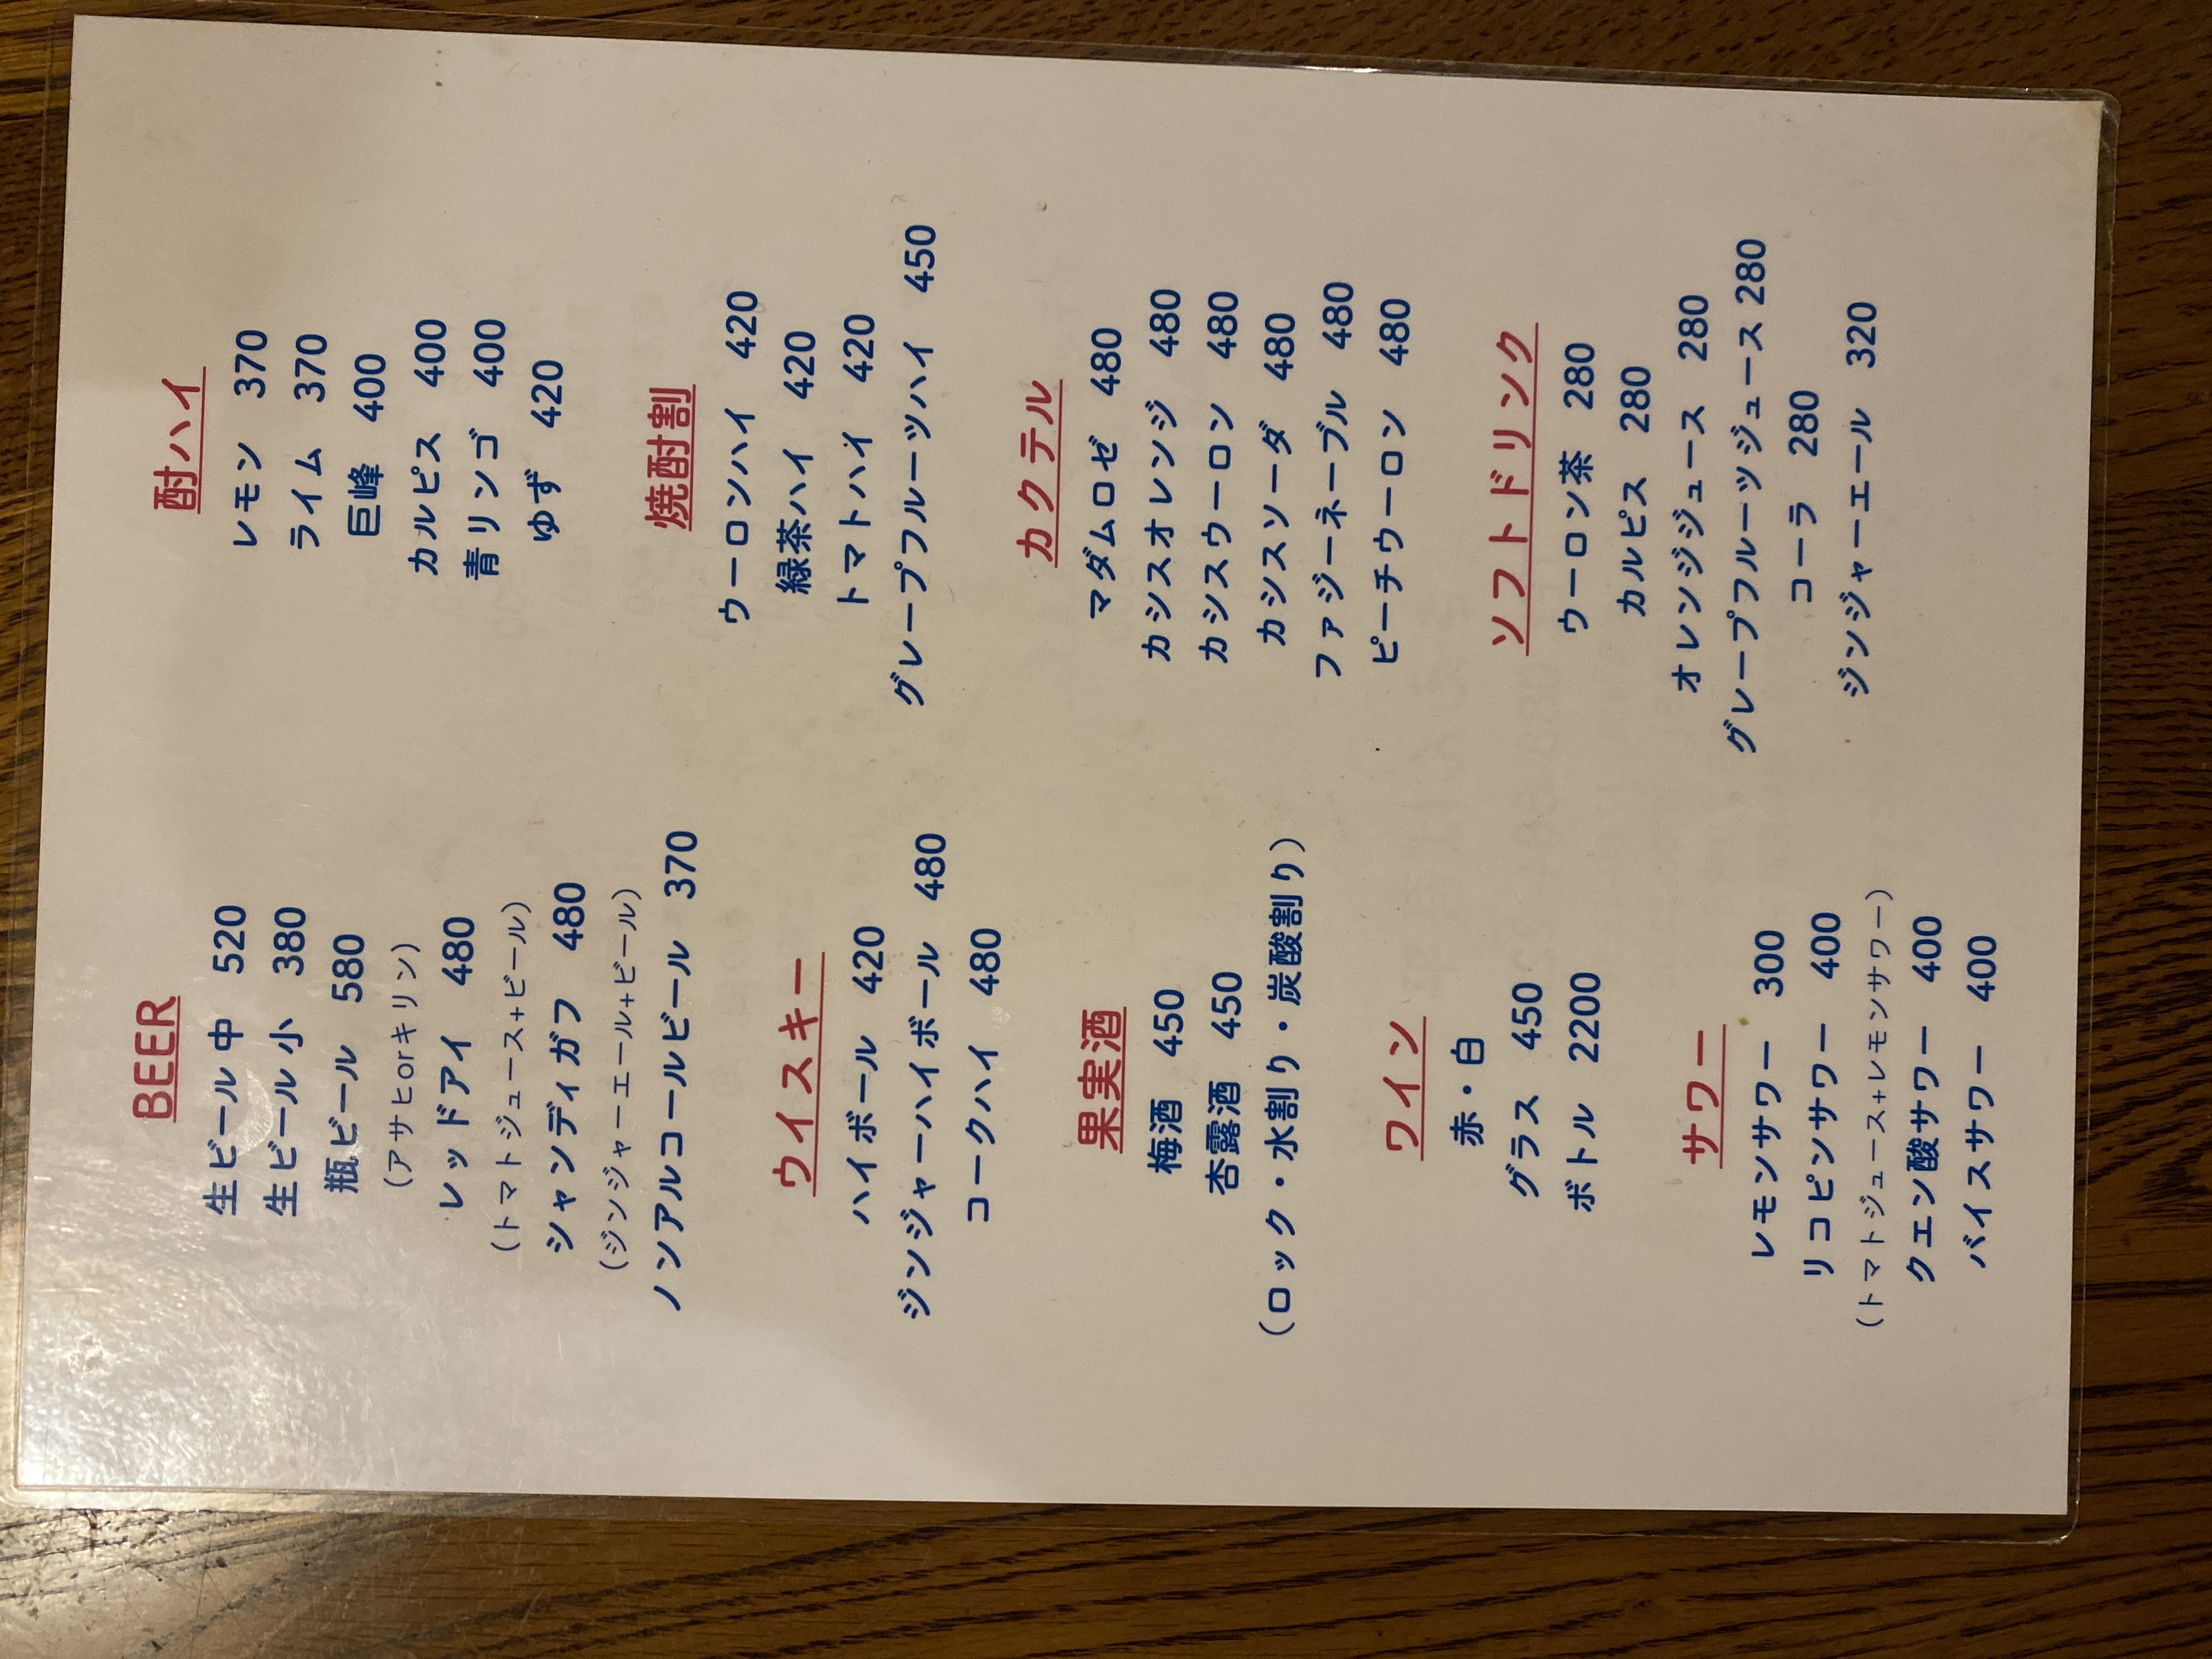 BEER
生ビール 中 520
生ビール 小 380
瓶ビール 580
(アサヒorキリン)
レッドアイ 480
(トマトジュース+ビール)
シャンディガフ 480
(ジンジャーエール+ビール)
ノンアルコールビール 370
ウイスキー
ハイボール 420
ジンジャーハイボール 480
コークハイ 480
果実酒
梅酒 450
杏露酒 450
(ロック・水割り・炭酸割り)
ワイン
赤・白
グラス 450
ボトル 2200
サワー
レモンサワー 300
リコピンサワー 400
(トマトジュース+レモンサワー)
クエン酸サワー 400
バイスサワー 400
酎ハイ
レモン 370
ライム 370
巨峰 400
カルピス 400
青リンゴ 400
ゆず 420
焼酎割
ウーロンハイ 420
緑茶ハイ 420
トマトハイ 420
グレープフルーツハイ 450
カクテル
マダムロゼ 480
カシスオレンジ 480
カシスウーロン 480
カシスソーダ 480
ファジーネーブル 480
ピーチウーロン 480
ソフトドリンク
ウーロン茶 280
カルピス 280
オレンジジュース 280
グレープフルーツジュース 280
コーラ 280
ジンジャーエール 320